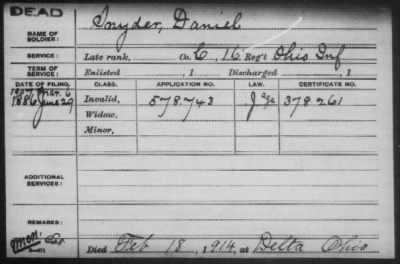 DEAD
Snyder, Daniel
NAME OF SOLDIER:
SERVICE: Late rank, Co. C, 16 Reg't Ohio Inf
TERM OF SERVICE: Enlisted , 1 Discharged , 1
DATE OF FILING. CLASS. APPLICATION NO. LAW. CERTIFICATE NO.
1907 Mar. 6
1886 June 29 Invalid, 578.743 378 261
Widow,
Minor,
ADDITIONAL SERVICES:
REMARKS:
Died Feb 18, 1914, at Delta Ohio